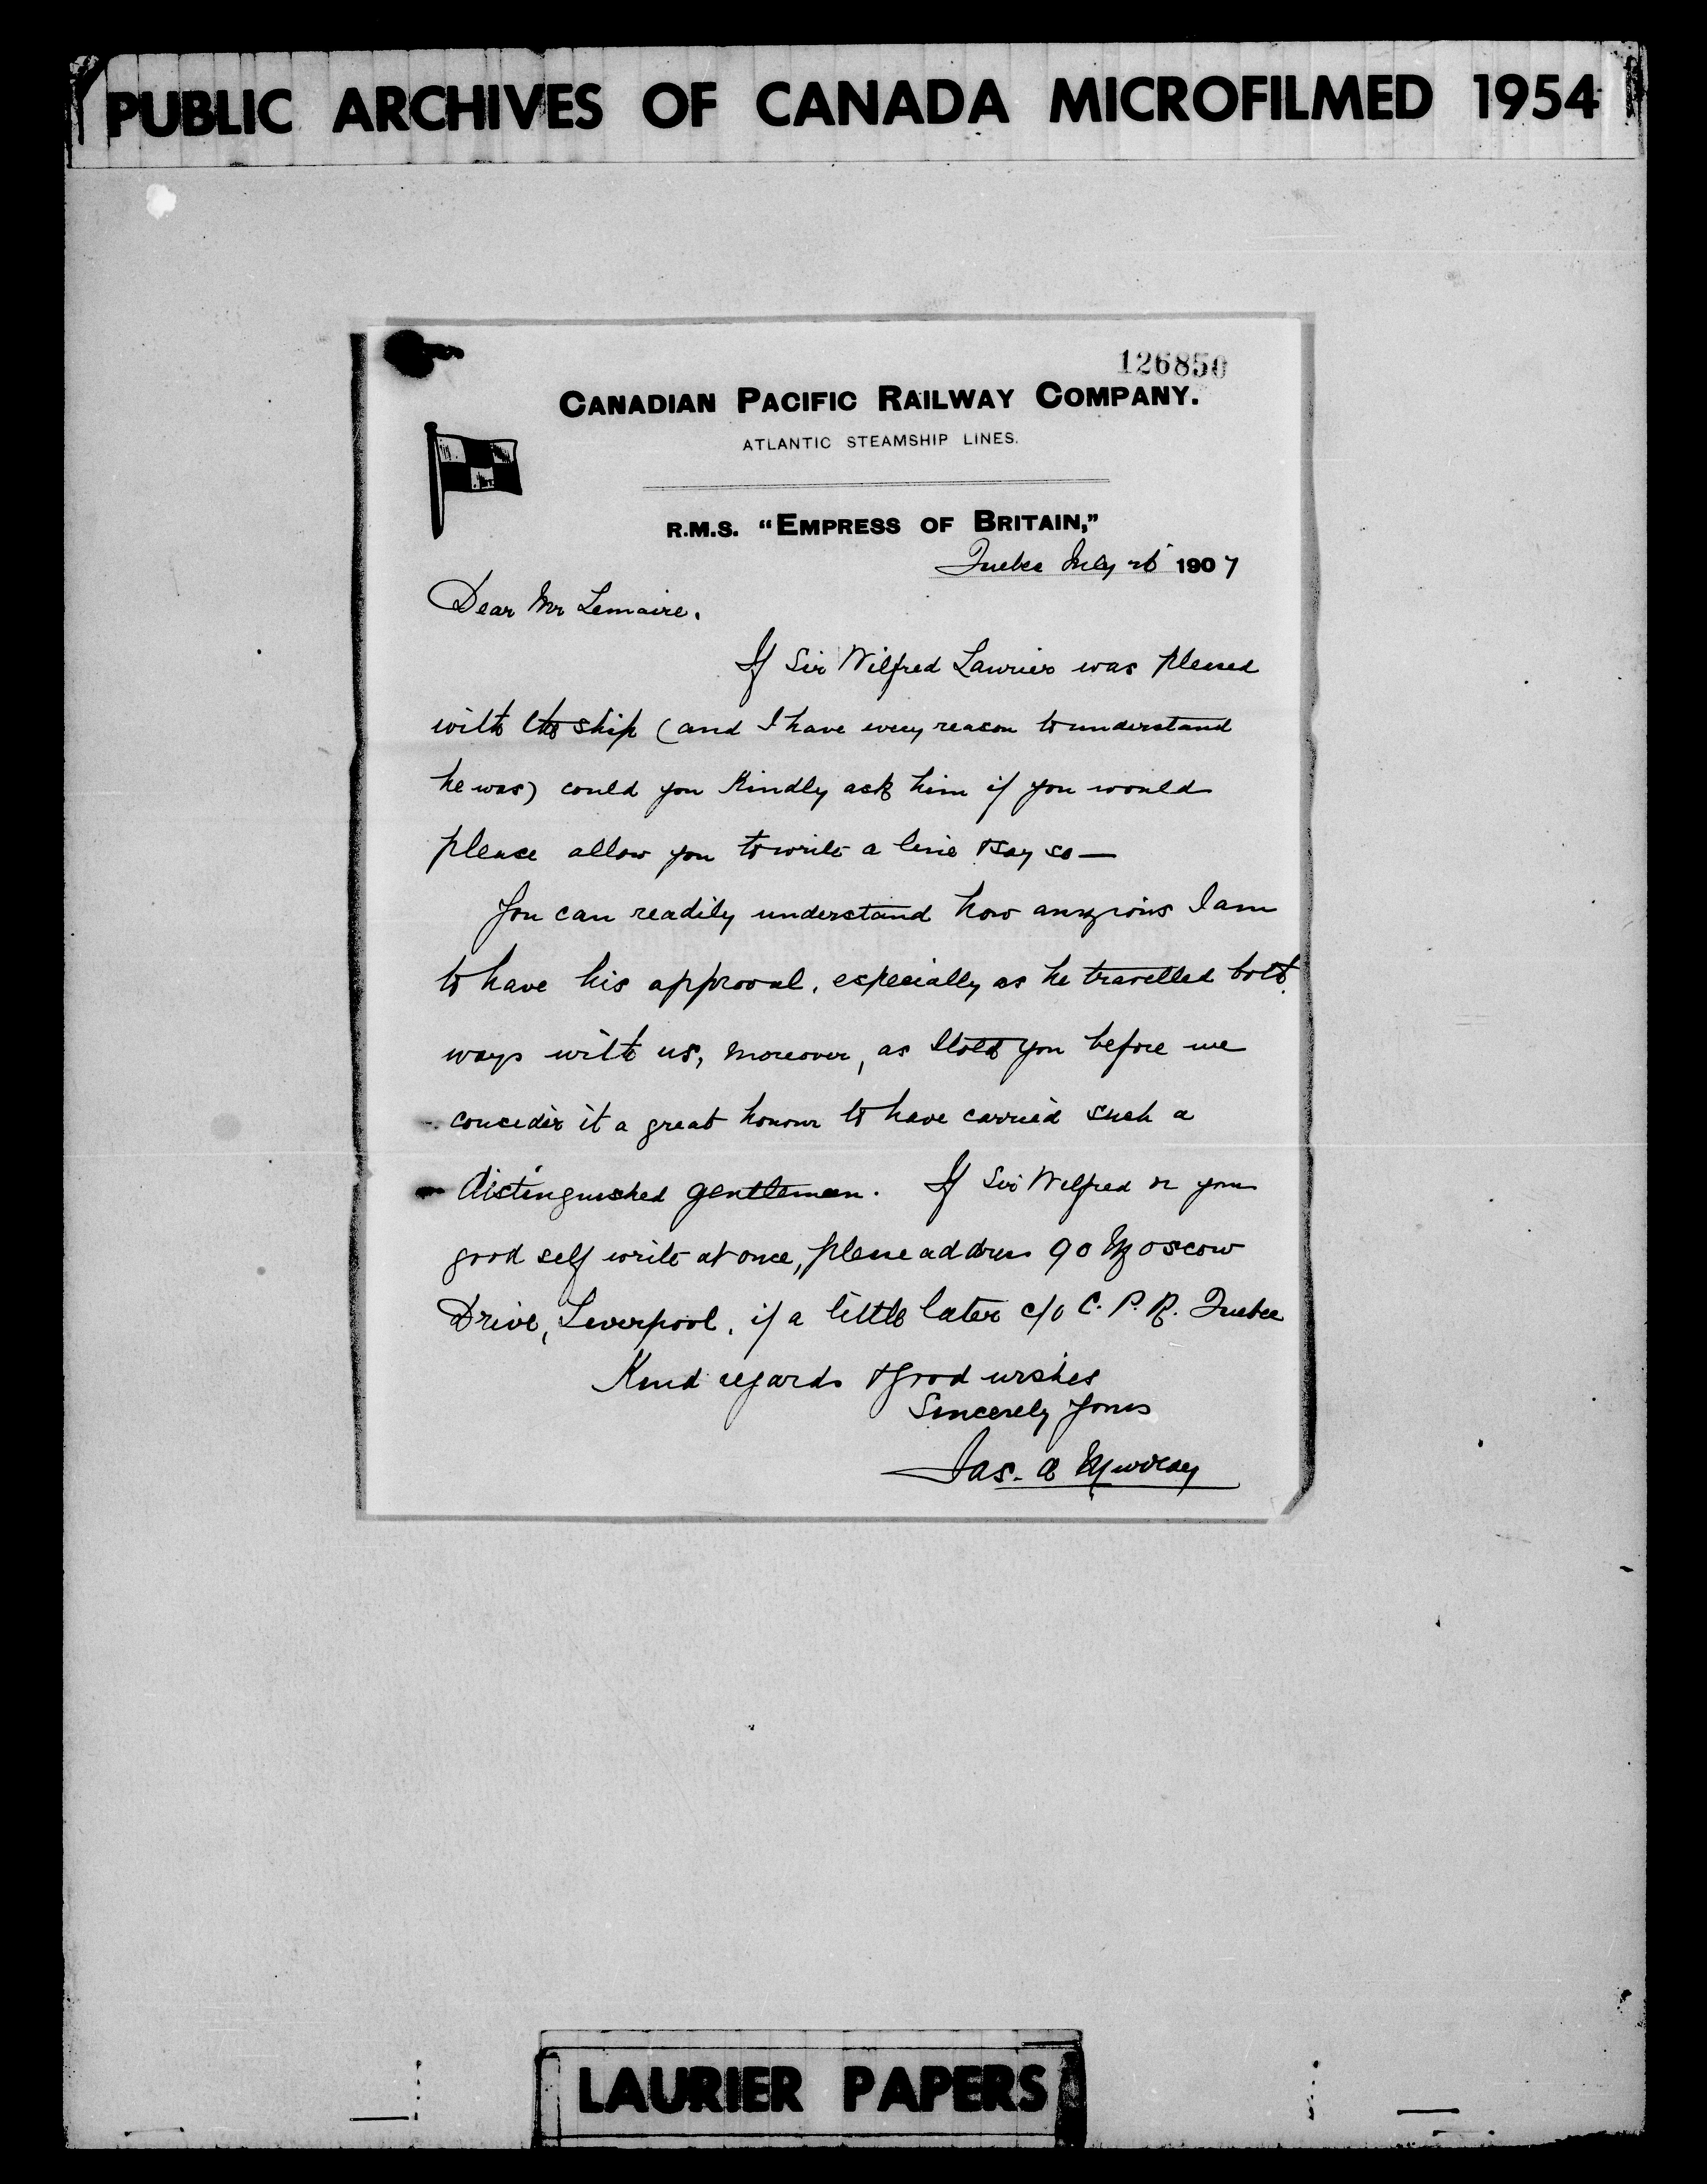 PUBLIC ARCHIVES OF CANADA MICROFILMED 1954
126850
CANADIAN PACIFIC RAILWAY COMPANY.
ATLANTIC STEAMSHIP LINES.
R.M.S. "EMPRESS OF BRITAIN,"
Quebec July 26 1907
Dear Mr Lemaire.
If Sir Wilfred Laurier was pleased
with the ship (and I have every reason to understand
he was) could you kindly ask him if you would
please allow you to write a line & say so—
You can readily understand how anxious I am
to have his approval, especially as he travelled both
ways with us, moreover, as I told you before we
consider it a great honour to have carried such a
distinguished gentleman. If Sir Wilfred or your
good self write at once, please address 90 Moscow
Drive, Liverpool, if a little later c/o C. P. R. Quebec
Kind regards & good wishes
Sincerely Yours
Jas. A Murray
LAURIER PAPERS